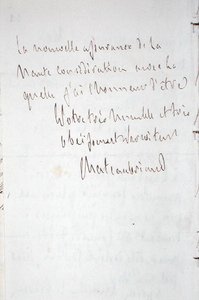 la nouvelle assurance de la
haute considération avec la
quelle j'ai l'honneur d'être
Votre très humble et très
obéissant serviteur
Chateaubriand